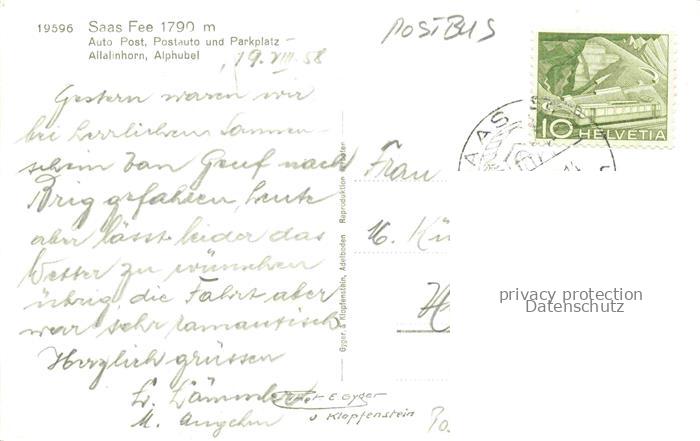 19596 Saas Fee 1790 m
Auto Post, Postauto und Parkplatz
Allalinhorn, Alphubel
POSTBUS
19. VIII. 58
10 HELVETIA
SAAS
Gestern waren wir
bei herrlichem Sonnen-
schein von Genf nach
Brig gefahren, heute
aber lässt leider das
Wetter zu wünschen
übrig, die Fahrt aber
war sehr romantisch.
Herzlich grüssen
M.
Gyger & Klopfenstein, Adelboden Reproduktion verboten
Frau
K. Kü
privacy protection
Datenschutz
Phot E. Gyger
u Klopfenstein